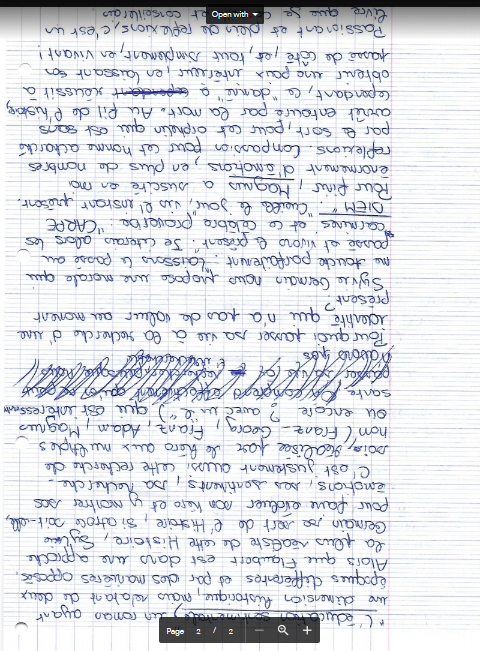 Open with
("éducation sentimentale") un roman ayant
une dimension historique, mais relatant de deux
époques différentes et par des manières opposées.
Alors que Flaubert est dans une approche
la plus réaliste de cette Histoire, Sylvie
Germain se sert de l'Histoire, si atroce soit-elle,
pour faire évoluer son héro et y montrer ses
émotions, ses sentiments, sa recherche.
C'est justement aussi cette recherche de
soi, réalisée par le héro aux multiples
nom (Franz-Georg, Franz, Adam, Magnus
ou encore ? avec un "l") qui est intéressante
Pourquoi passer sa vie à la recherche d'une
identité qui n'a pas de valeur au moment
présent?
Sylvie Germain nous propose une morale qui
me touche parfaitement : laissons le passé au
passé et vivons le présent. Je citerais alors les
et ce célèbre proverbe "CARPE
DIEM" : "Cueille le jour, vis l'instant présent.
Pour finir, Magnus a suscité en moi
énormément d'émotions, en plus de nombres
réflexions. Compassion pour cet homme acharné
par le sort, pour cet orphelin qui est sans
arrêt entouré par la mort. Au fil de l'histoire,
cependant, ce "damné" a réussit à
obtenir une paix intérieur en laissant son
passé de côté, et, tout simplement, en vivant!
Passionant et plein de réflexions, c'est un
livre que je conseillerais
Page 2 / 2